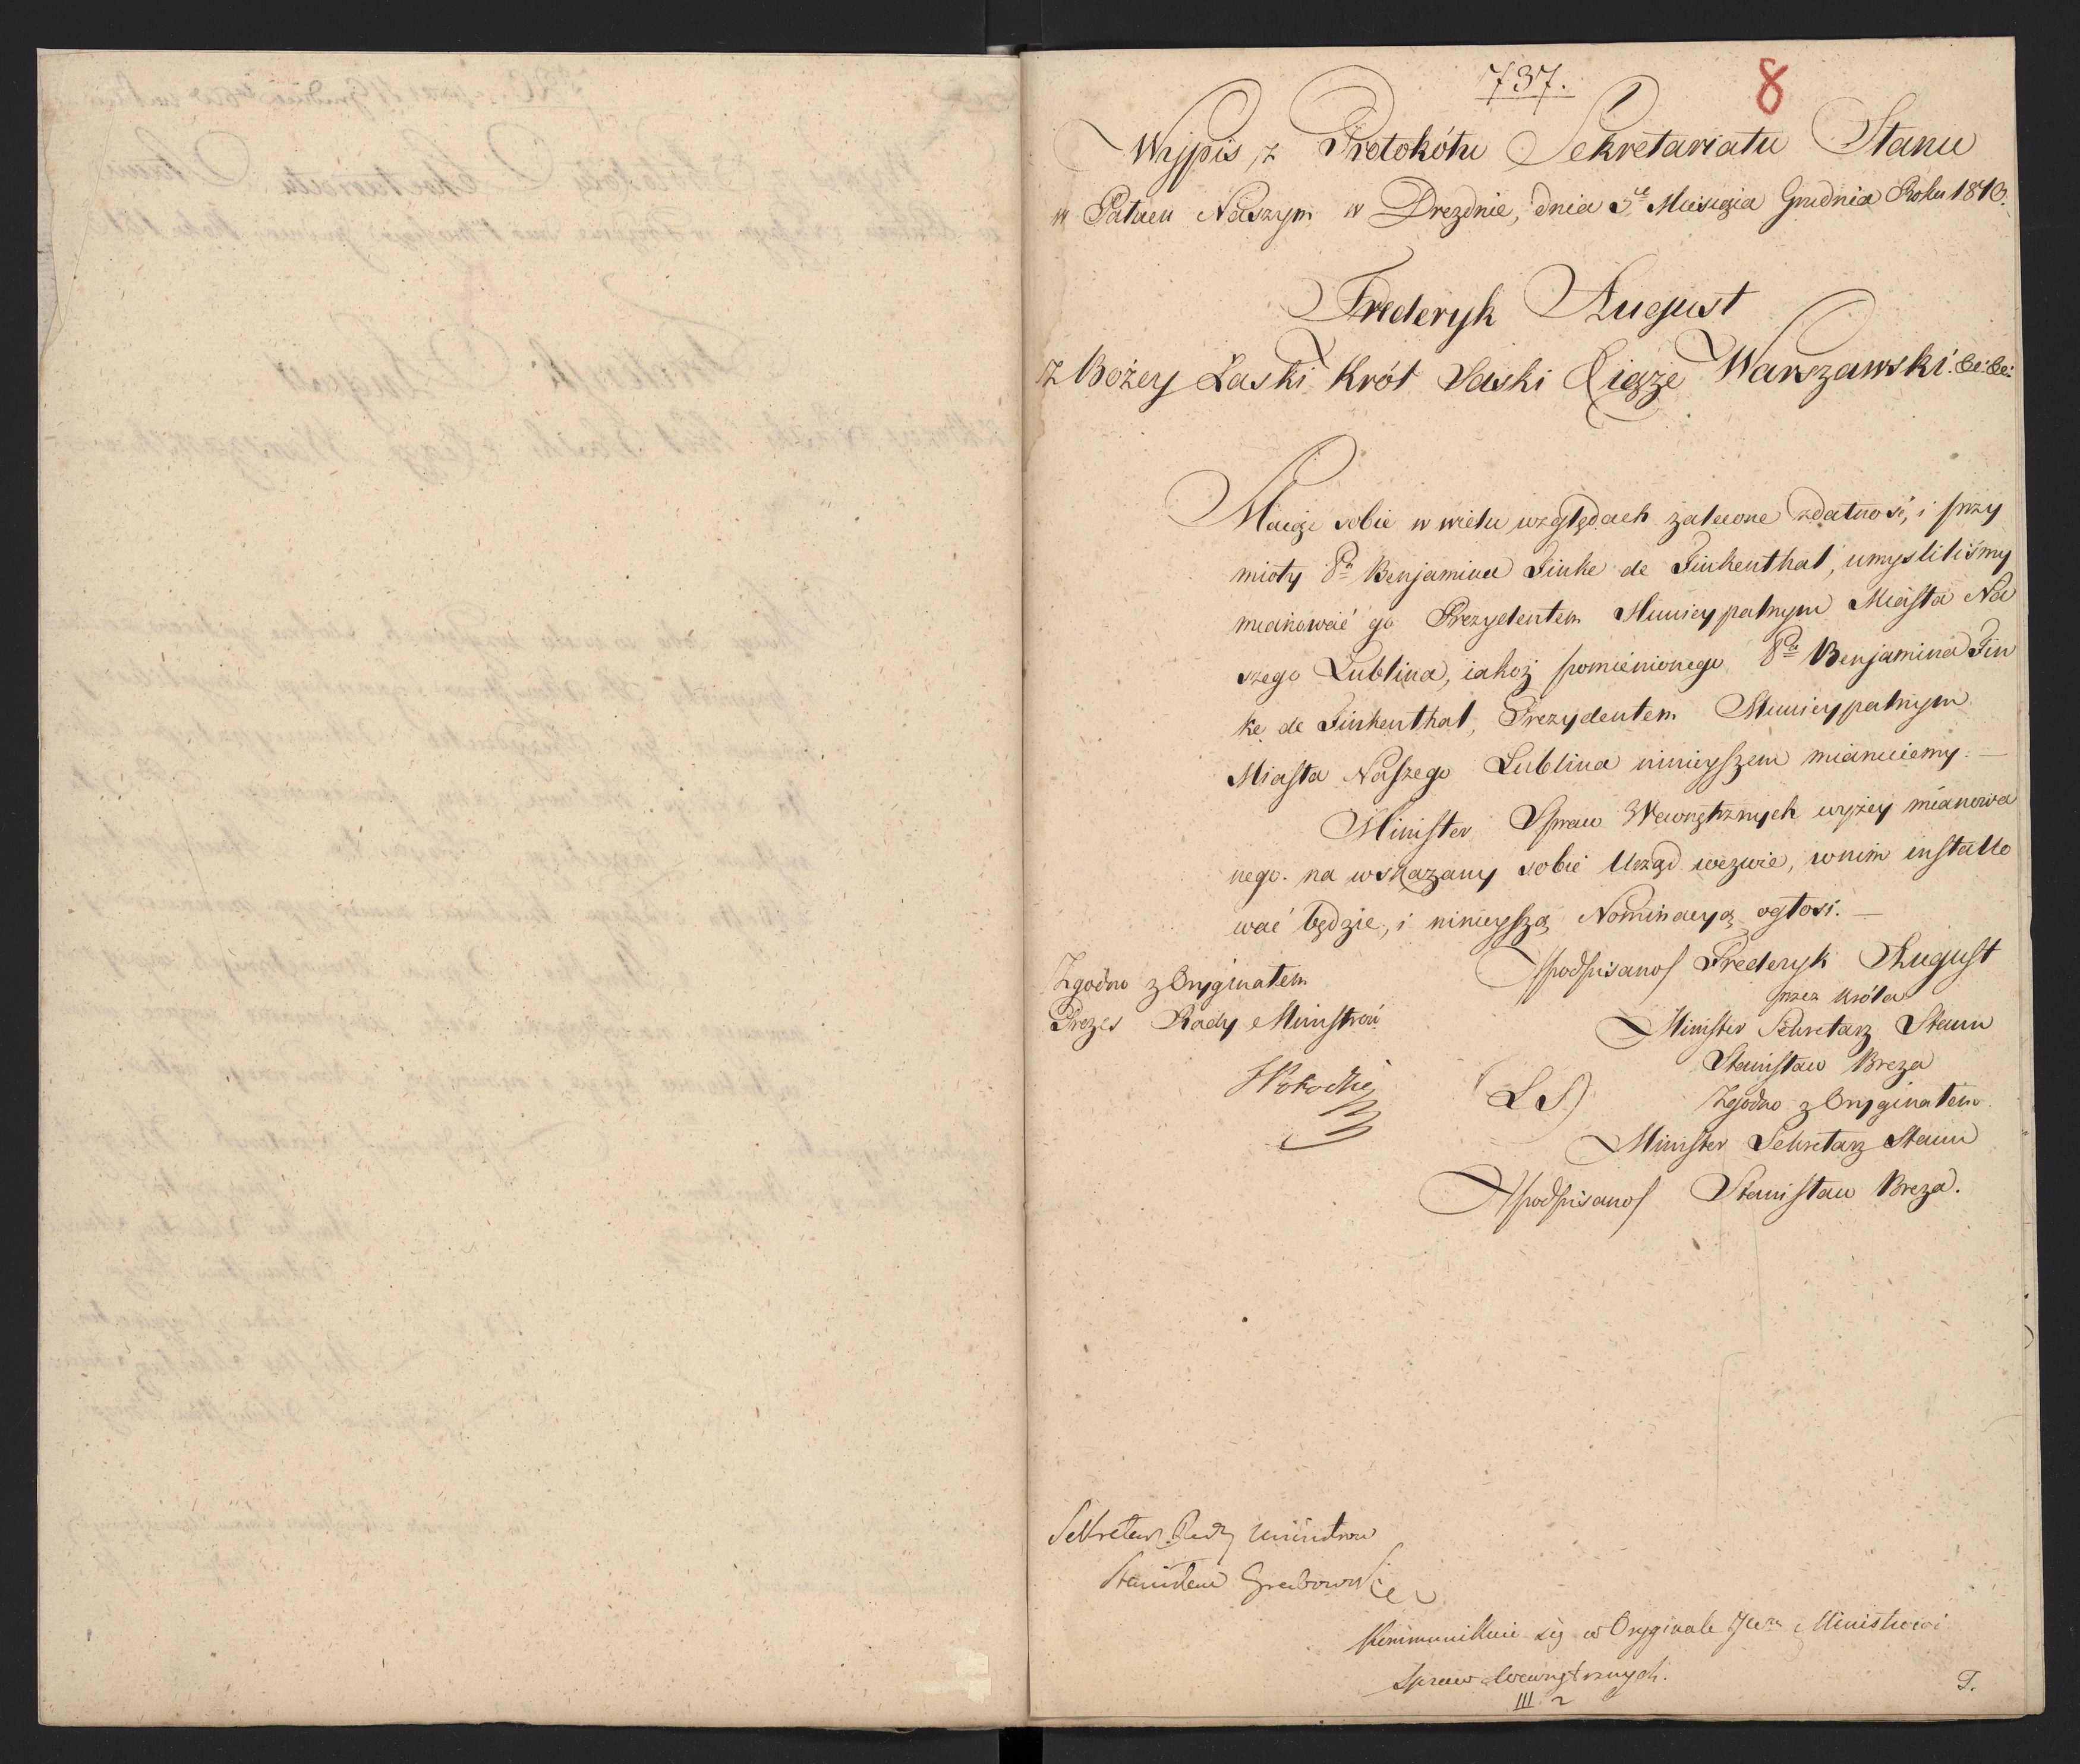 737.
8
Wyjpis z Protokółu Sekretariatu Stanu
w Pałacu Naszym w Dreznie, dnia 5go Miesiąca Grudnia Roku 1810.
Frederyk August
z Bożey Łaski Król Saski Xiąże Warszawski &c: &c:
Maiąc sobie w wielu względach zalecone zdatność, i przy
mioty Pa Benjamina Finke de Finkenthal, umysliliśmy
mianować go Prezydentem Municypalnym Miasta Na
szego Lublina, iakoż pomienionego Pa Benjamina Fin
ke de Finkenthal, Prezydentem Municypalnym
Miasta Naszego Lublina ninieyszem mianuiemy. —
Minister Spraw Wewnętrznych wyżey mianowa
nego na wskazany sobie Urząd wezwie, w nim installo
wać będzie, i ninieyszą Nominacyą ogłosi. —
/podpisano/ Frederyk August
przez Króla
Minister Sekretarz Stanu
Stanisław Breza
(L S)
Zgodno z Oryginałem
Minister Sekretarz Stanu
/podpisano/ Stanisław Breza.
Zgodno z Oryginałem
Prezes Rady Ministrów
Sekretarz Rady Ministrow
Stanisław Grabowski
Kommunikuie się w Oryginale JWmu Ministrowi
Spraw Wewnętrznych.
III 2
T.